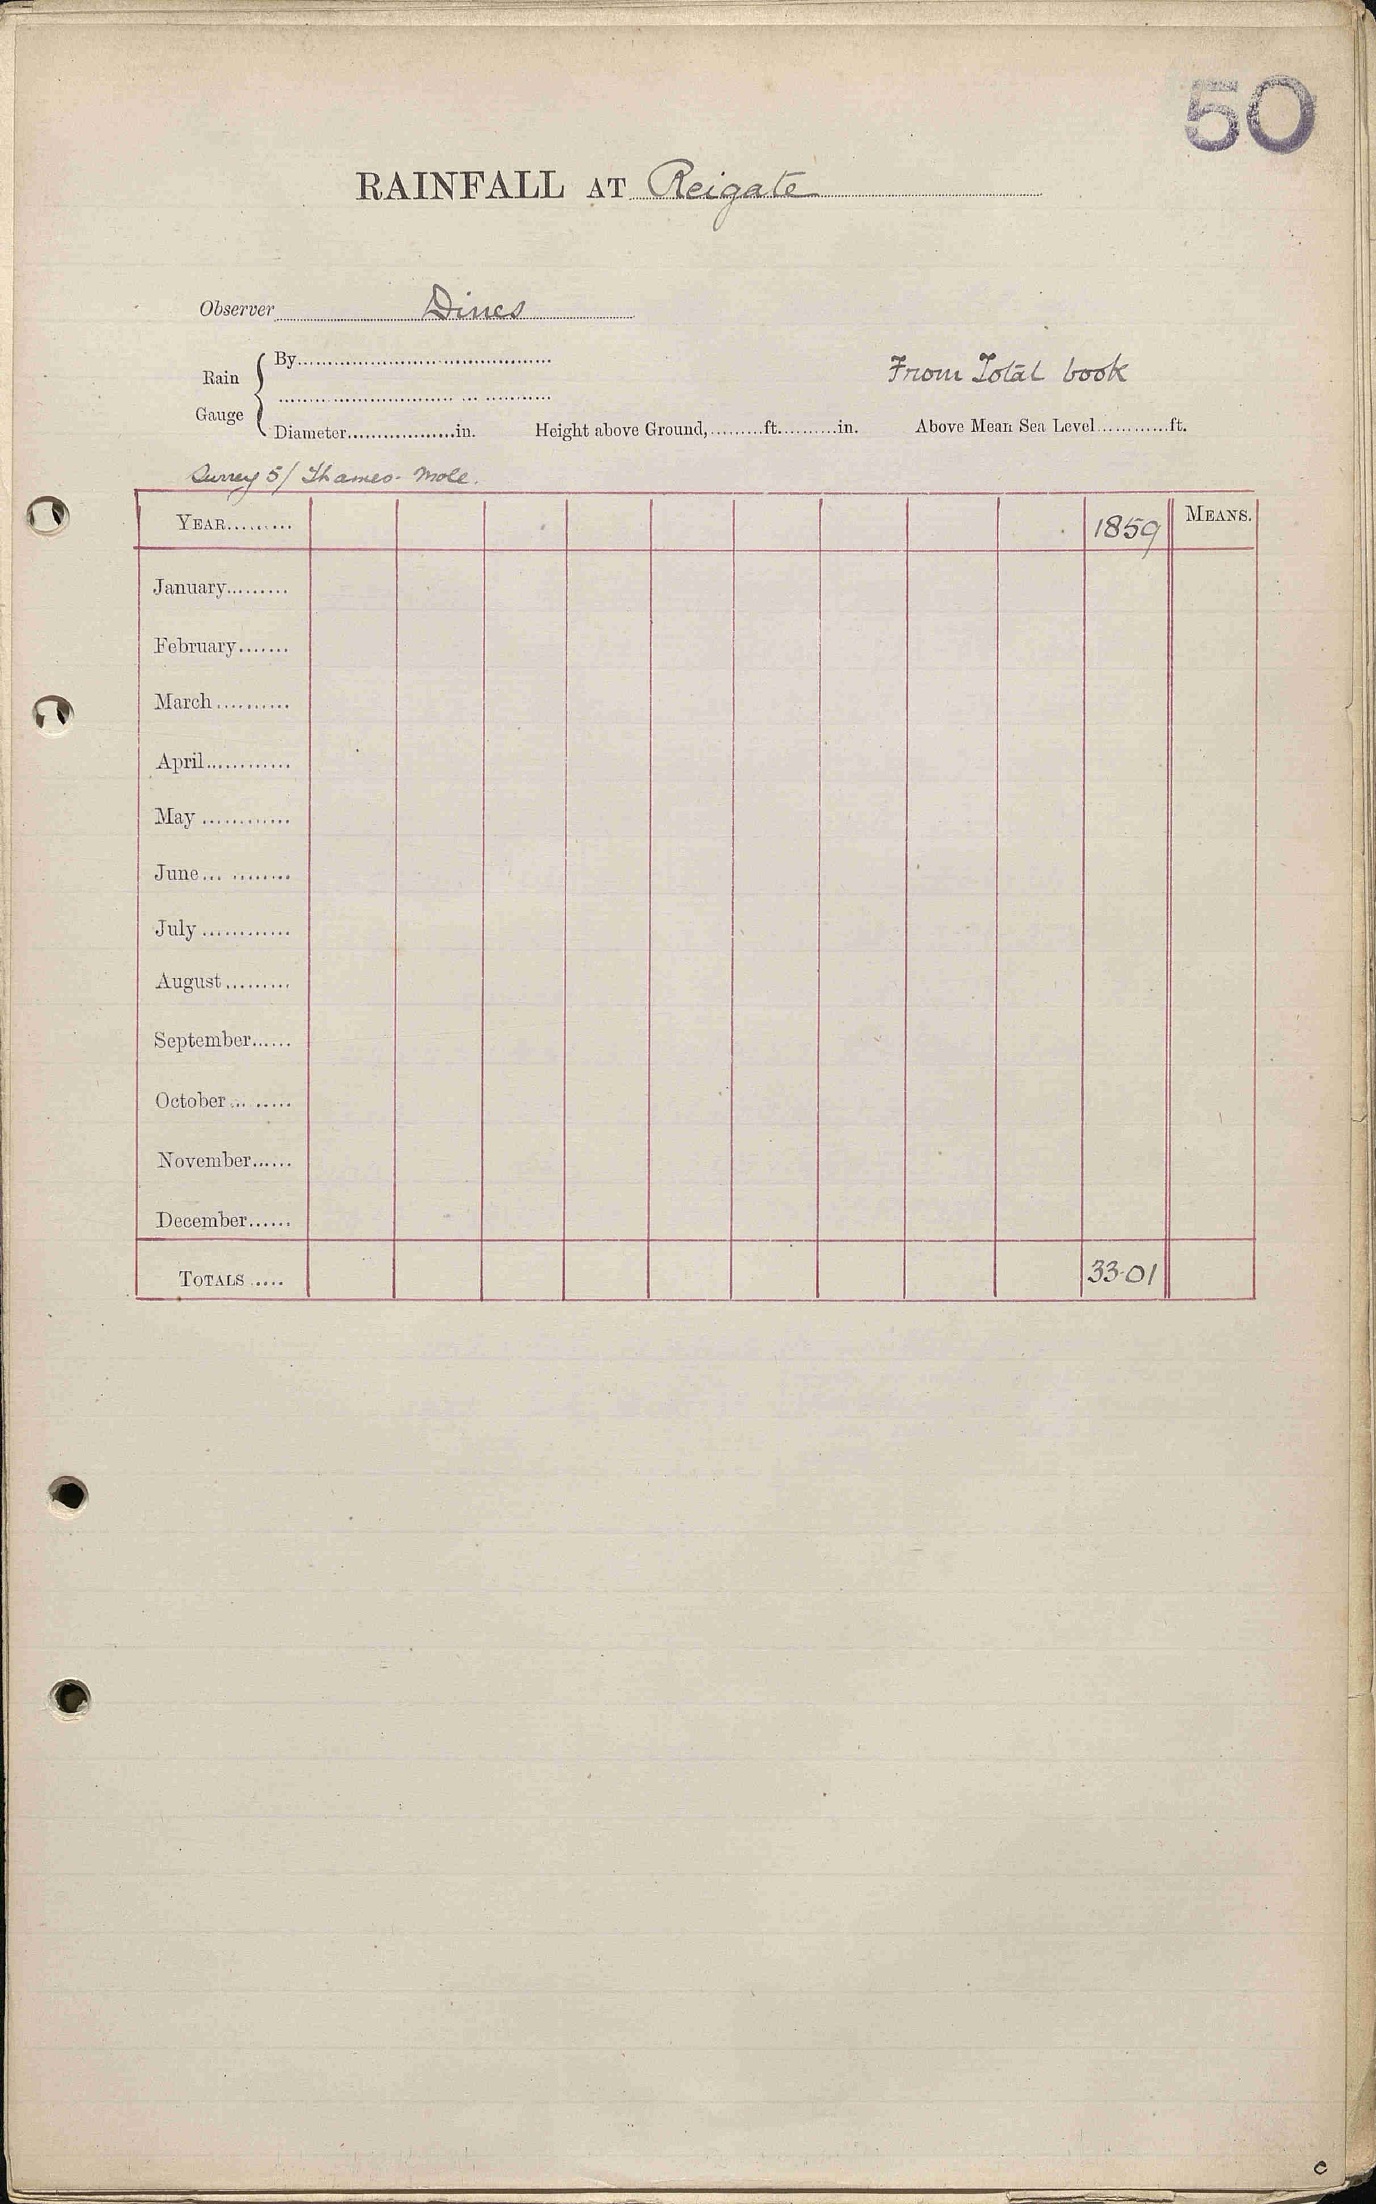 50
RAINFALL AT Reigate
Observer Dines
Rain Gauge { By
From Total book
Diameter in. Height above Ground, ft. in. Above Mean Sea Level ft.
Surrey 5/ Thames - Mole.
YEAR 1859 MEANS.
January
February
March
April
May
June
July
August
September
October
November
December
TOTALS 33.01
c